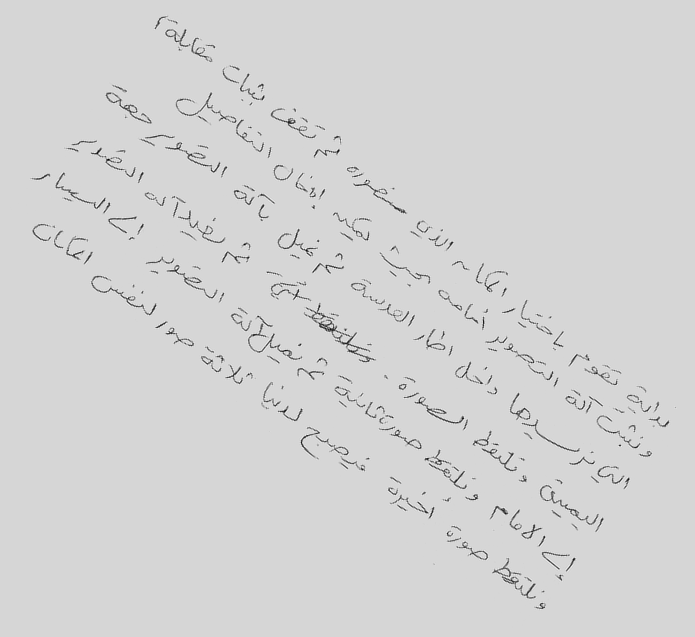 بداية نقوم باختيار المكان الذي سنصوره ثم نقف بثبات مقابله،
ونثبت آلة التصوير أمامه بحيث يمكنه إدخال التفاصيل
التي نريدها داخل اطار العدسة ثم نميل بآلة التصوير جهة
اليمين ونلتقط الصورة. ثم نعيد آلة التصوير
إلى الامام ونلتقط صورة ثانية ثم نميل آلة التصوير إلى اليسار
ونلتقط صورة اخيرة فيصبح لدينا ثلاثة صور لنفس المكان